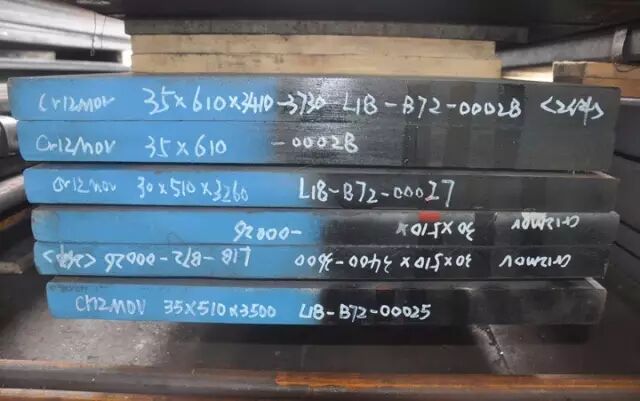 Cr12MoV 35×610×3410-3730 L18-B72-00028 <2件>
Cr12MoV 35×610 -00028
Cr12MoV 30×510×3260 L18-B72-00027
Cr12MOV 30×510× -00026
Cr12MOV 30×510×3400-3600 L18-B72-00026 <2件>
Cr12MOV 35×510×3500 L18-B72-00025